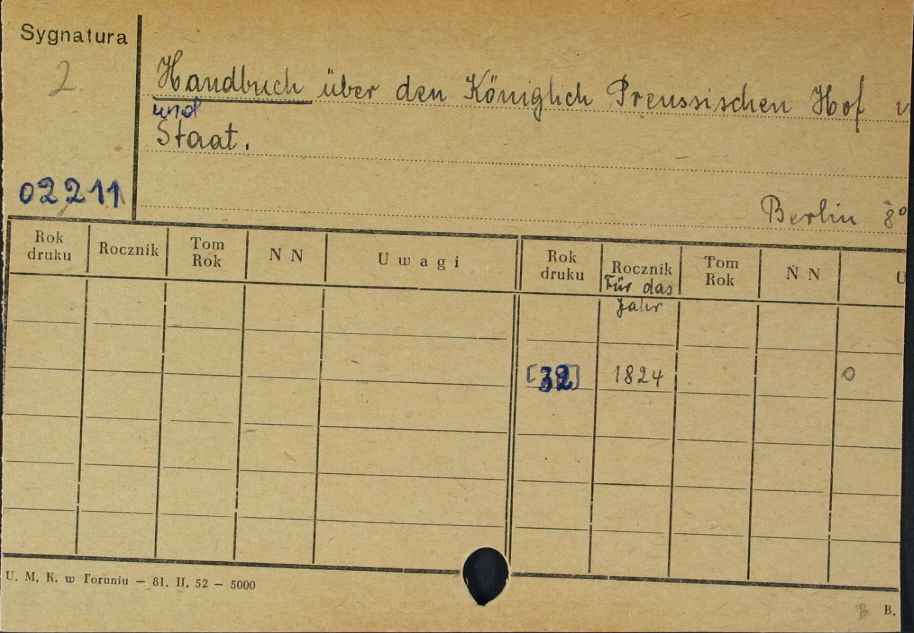 Sygnatura
2
Handbuch über den Königlich Preussischen Hof
und
Staat.
02211
Berlin 8°
Rok druku Rocznik Tom Rok N N Uwagi Rok druku Rocznik Tom Rok N N U
Für das
Jahr
1824 0
U. M. K. w Toruniu — 81. II. 52 — 5000
B B.